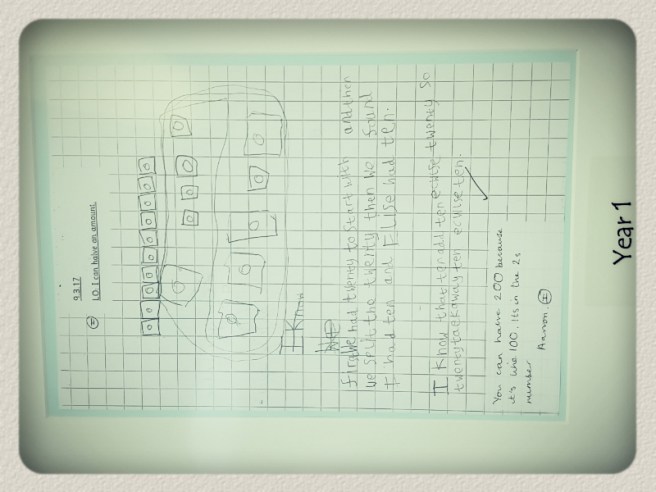 9.3.17
LO I can halve an amount.
I
I Know
We
first we had twenty to start with and then
we split the twenty then we found
I had ten and Elise had ten.
I Know that ten add ten ecwise twenty so
twenty taekaway ten ecwise ten.
You can halve 200 because
it's like 100, its in the 2s
number. Aaron. I
Year 1